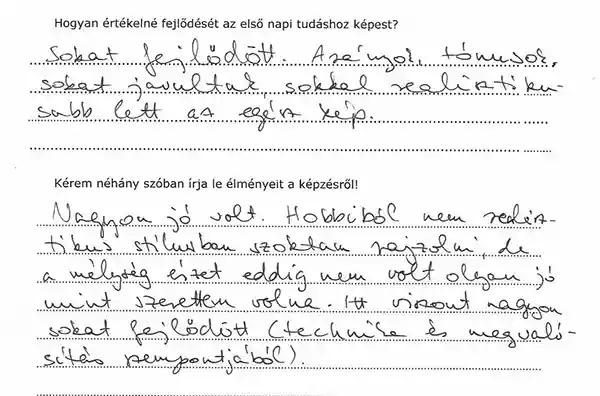 Hogyan értékelné fejlődését az első napi tudáshoz képest?
Sokat fejlődött. Arányok, tónusok,
sokat javultak, sokkal realisztiku-
sabb lett az egész kép.
Kérem néhány szóban írja le élményeit a képzésről!
Nagyon jó volt. Hobbiból nem realisz-
tikus stílusban szoktam rajzolni, de
a mélység érzet eddig nem volt olyan jó
mint szerettem volna. Itt viszont nagyon
sokat fejlődött (technika és megvaló-
sítás szempontjából).